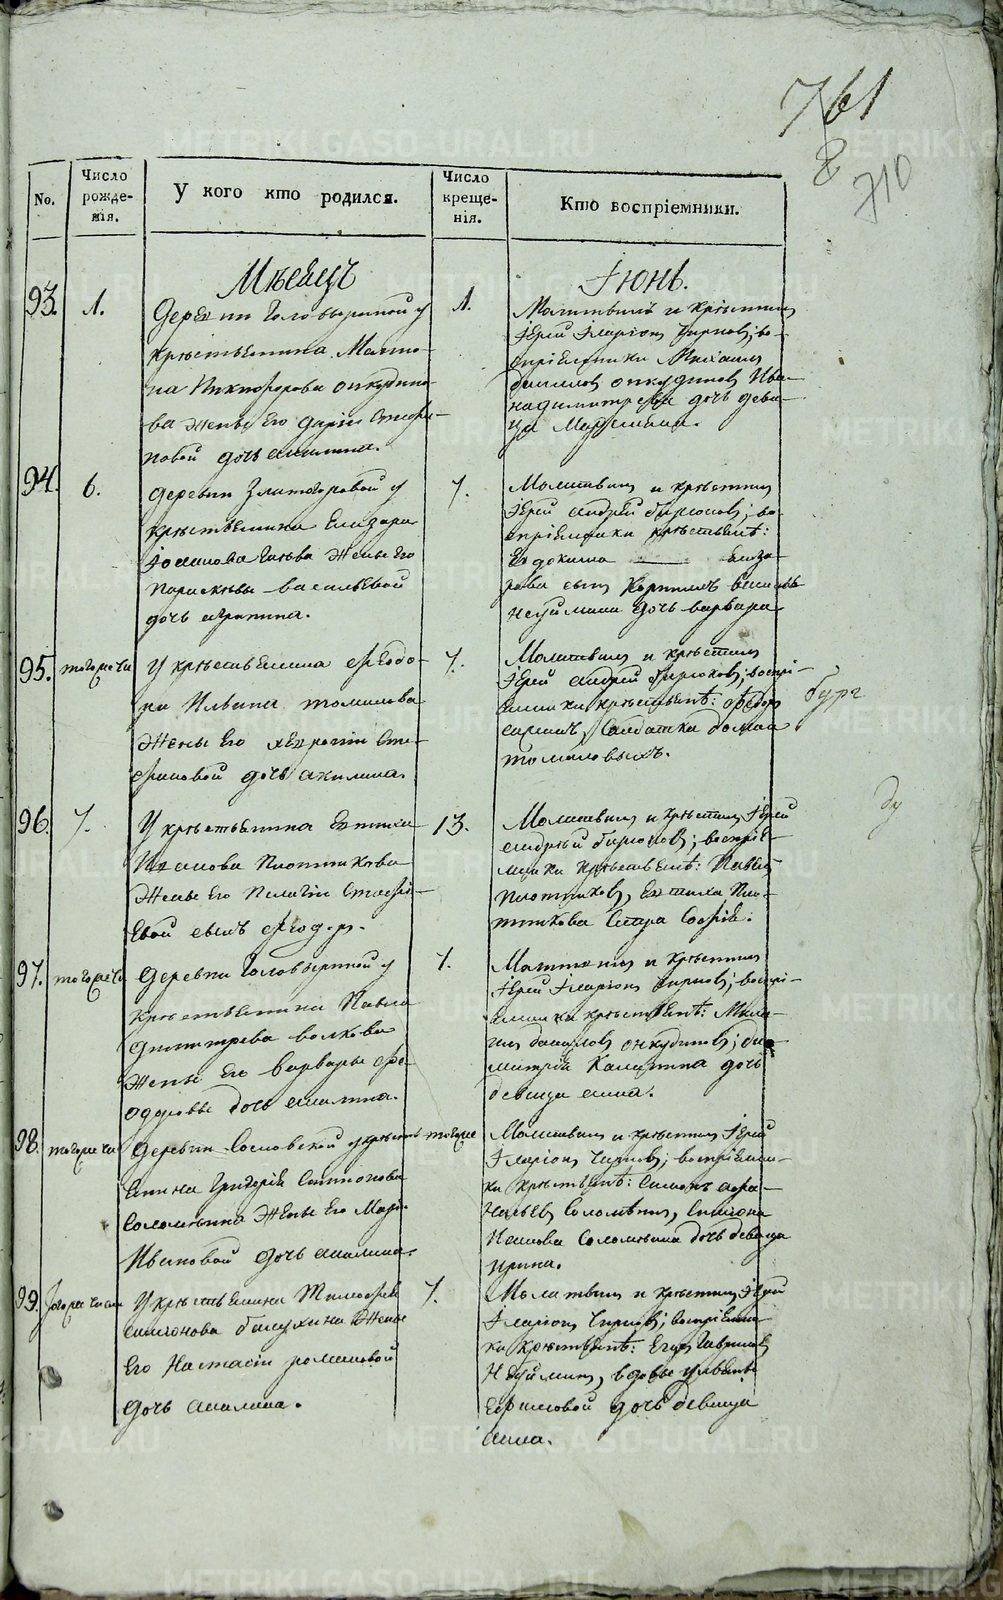 761
710
No.
Число рожде-нія.
У кого кто родился.
Число креще-нія.
Кто воспріемники.
Мѣсецъ
Іюнь.
93.
1.
Деревни Головыриной у
крестьенина Марти-
на Никифорова
ва жены Его Даріи Стефа-
новой дочь акилина.
1.
Молитвилъ и крестилъ
Іерей Іларіонъ Чирковъ; во-
спріемники Михаилъ
даниловъ онкудиновъ Ива-
на димитрева дочь деви-
ца
94.
6.
деревни Златогоровой у
крестьенина Елизара
Іоаннова жены Его
Параскевы васильевой
дочь агрипина.
7.
Молитвилъ и крестилъ
Іерей андрей бирюковъ; во-
спріемники крестьенѣ:
Евдокима Елиза-
рова сынъ
дочь варвара.
95.
тогоже чи
У крестьенина феодо-
ра Ильина томилова
жены Его Сте-
фановой дочь акилина.
7.
Молитвилъ и крестилъ
Іерей андрей бирюковъ; воспрі-
емники крестьенѣ: ѳедоръ
Салдатка домна
томиловыхъ.
96.
7.
У крестьенина Евтихи
Иванова плотникова
жены Его Пелагіи
Евой сынъ феодоръ.
13.
Молитвилъ и крестилъ Іерей
андрей бирюковъ; воспріе-
мники крестьенѣ: Павелъ
плотниковъ, Евтиха Пло-
тникова Софія.
97.
тогоже чи
Деревни Головыриной у
крестьенина Павла
димитрева волкова
жены Его варвары фе-
одоровы дочь акилина.
7.
Молитвилъ и крестилъ
Іерей Іларіонъ Чирковъ; воспрі-
емники крестьенѣ: Миха-
илъ даниловъ онкудиновъ; ди-
митрія Калинина дочь
девица анна.
98.
тогоже чи
Деревни Сосновской укресть
енина Григорія
Соломѣина жены Его Маріи
Ивановой дочь акилина.
тогоже
Молитвилъ и крестилъ Іерей
Іларіонъ Чирковъ; воспріемни-
ки крестьенѣ: Симонъ афа-
насьевъ Соломѣинъ,
Соломѣина дочь девица
ирина.
99.
тогоже числа
У крестьенина Тимофея
симіонова жены
Его Настасіи романовой
дочь акилина.
7.
Молитвилъ и крестилъ Іерей
Іларіонъ Чирковъ; воспріемни-
ки крестьенѣ: Егоръ Гавриловъ
вдовы
Ефимовой дочь девица
анна.
METRIKI.GASO-URAL.RU